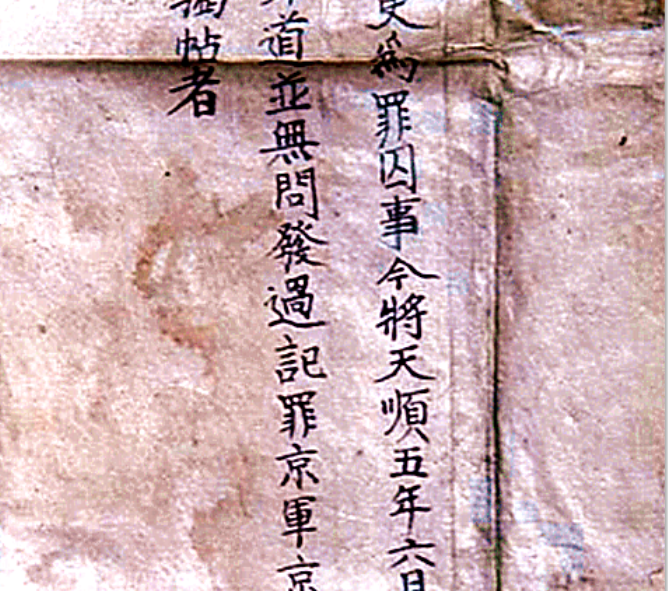 為罪囚事今將天順五年六月
道並無問發過記罪京軍京
帖者